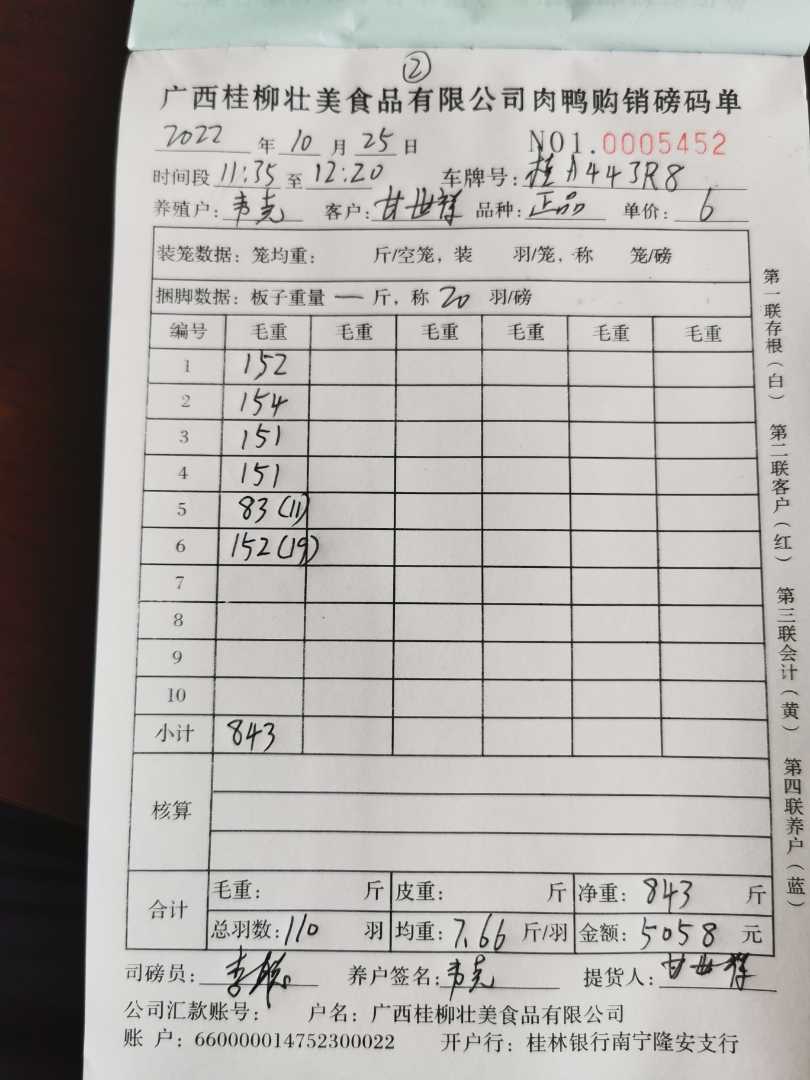 ②
广西桂柳壮美食品有限公司肉鸭购销磅码单
2022 年 10 月 25 日 NO1.0005452
时间段 11:35 至 12:20 车牌号:桂A443R8
养殖户:韦克 客户:甘世祥 品种:正品 单价:6
装笼数据:笼均重: 斤/空笼,装 羽/笼,称 笼/磅
捆脚数据:板子重量 一 斤,称 20 羽/磅
编号 毛重 毛重 毛重 毛重 毛重 毛重
1 152
2 154
3 151
4 151
5 83(11)
6 152(19)
7
8
9
10
小计 843
核算
合计 毛重: 斤 皮重: 斤 净重:843 斤
总羽数:110 羽 均重:7.66 斤/羽 金额:5058 元
司磅员: 养户签名:韦克 提货人:甘世祥
公司汇款账号: 户名:广西桂柳壮美食品有限公司
账 户:660000014752300022 开户行:桂林银行南宁隆安支行
第一联存根(白) 第二联客户(红) 第三联会计(黄) 第四联养户(蓝)